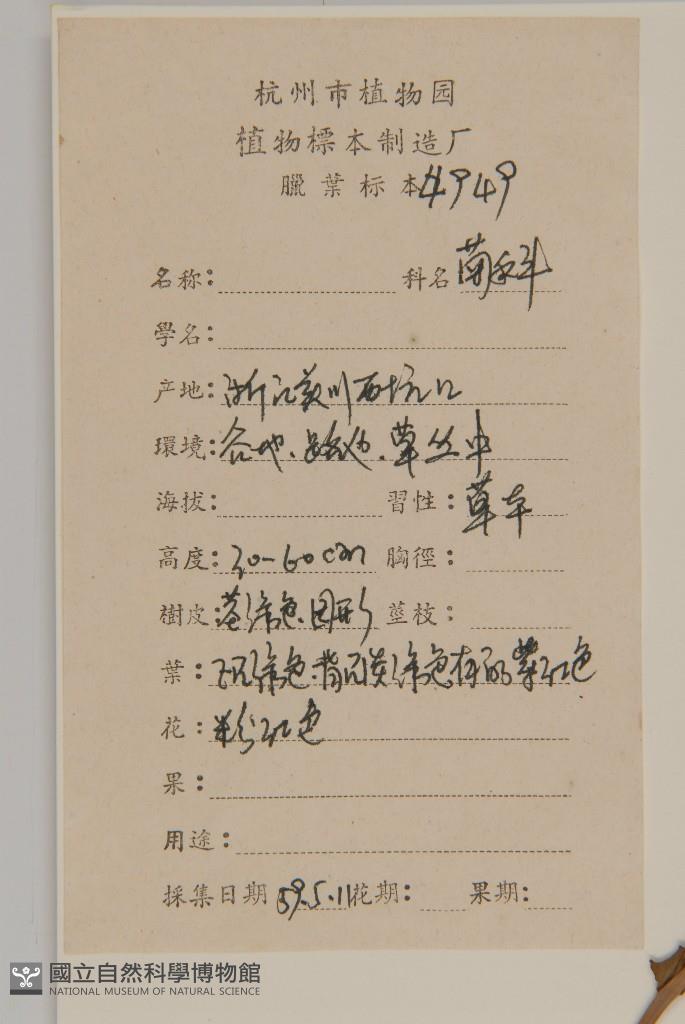 杭州市植物园
植物標本制造厂
臘葉标本4949
名称： 科名
學名：
产地：浙江
環境：谷地、路边、草丛中
海拔： 習性：草本
高度：30-60cm 胸徑：
樹皮：色、圆形 莖枝：
葉：绿色、背面淡绿色有的紫红色
花：粉红色
果：
用途：
採集日期 59.5.11 花期： 果期：
國立自然科學博物館
NATIONAL MUSEUM OF NATURAL SCIENCE